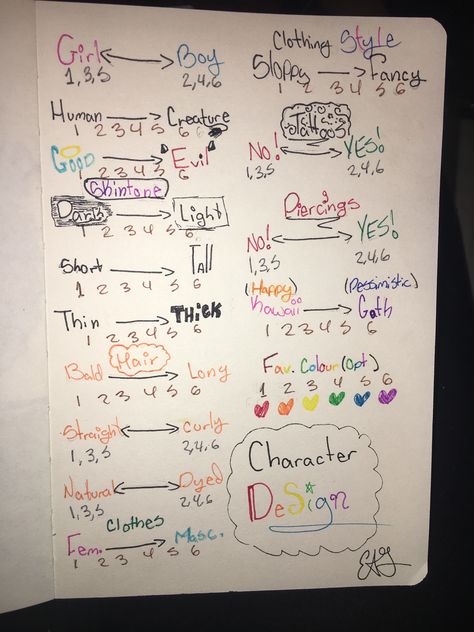 Girl Boy
1,3,5 2,4,6
Human Creature
1 2 3 4 5 6
GOOD Evil
1 2 3 4 5 6
Skintone
Dark Light
1 2 3 4 5 6
Short Tall
1 2 3 4 5 6
Thin THICK
1 2 3 4 5 6
Hair
Bald Long
1 2 3 4 5 6
Straight curly
1,3,5 2,4,6
Natural Dyed
1,3,5 2,4,6
Clothes
Fem. Masc.
1 2 3 4 5 6
Clothing Style
Sloppy Fancy
1 2 3 4 5 6
Tattoos
NO! YES!
1,3,5 2,4,6
Piercings
NO! YES!
1,3,5 2,4,6
(Happy) (Pessimistic)
Kawaii Goth
1 2 3 4 5 6
Fav. Colour (Opt)
1 2 3 4 5 6
Character
DeSign